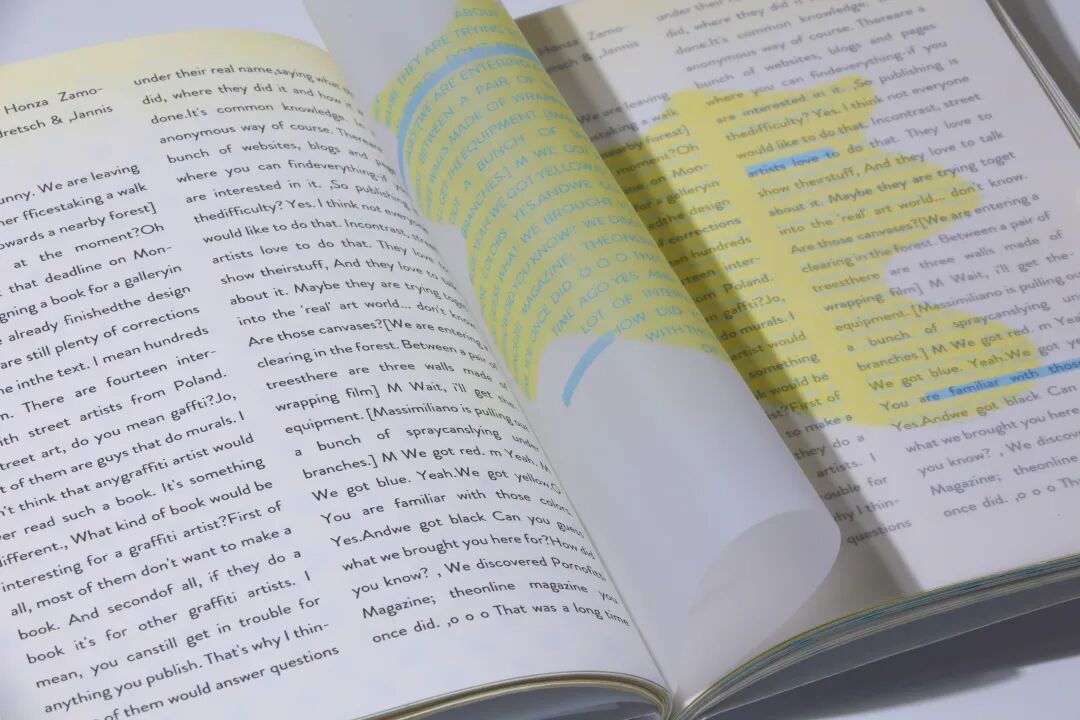 Honza Zamo-
dretsch & ,Jannis
unny. We are leaving
her fficestaking a walk
owards a nearby forest]
at the moment?Oh
that deadline on Mon-
gning a book for a galleryin
already finishedthe design
are still plenty of corrections
e inthe text. I mean hundreds
m. There are fourteen inter-
ith street artists from Poland.
treet art, do you mean gaffti?Jo,
t of them are guys that do murals. I
n't think that anygraffiti artist would
er read such a book. It's something
ifferent., What kind of book would be
interesting for a graffiti artist?First of
all, most of them don't want to make a
book. And secondof all, if they do a
book it's for other graffiti artists. I
mean, you canstill get in trouble for
anything you publish. That's why I thin-
of them would answer questions
under their real name,saying what
did, where they did it and how
done.It's common knowledge.
anonymous way of course. There
bunch of websites, blogs and
where you can findeverything-if
are interested in it. ,So publish
thedifficulty? Yes. I think not every
would like to do that. Incontrast, stre
artists love to do that. They love
show theirstuff, And they love to
about it. Maybe they are trying toget
into the 'real' art world... don't know.
Are those canvases?[We are entering a
clearing in the forest. Between a pair of
treesthere are three walls made of
wrapping film] M Wait, i'll get the
equipment. [Massimiliano is pulling out
a bunch of spraycanslying under
branches.] M We got red. m Yeah. M
We got blue. Yeah.We got yellow.
You are familiar with those colors.
Yes.Andwe got black Can you guess
what we brought you here for?How did
you know? , We discovered Pornofitti
Magazine; theonline magazine you
once did. ,o o o That was a long time
ABOUT
THEY ARE TRYING
WE ARE ENTERING
BETWEEN A PAIR OF
WALLS MADE OF WRAPP
A BUNCH OF
BRANCHES.] M WE GOT
YEAH.WE GOT YELLOW.
COLORS. YES.ANDWE
WHAT WE BROUGHT
YOU KNOW? WE DIS
MAGAZINE; THEONL
ONCE DID. O O O THA
TIME AGO YES, AND
LOT OF INTER
HOW DID
WITH TH
Honza Zamo-
&, Jannis
are leaving
estaking a walk
nearby forest]
moment?Oh
on Mon-
for a galleryin
edthe design
of corrections
an hundreds
teen inter-
om Poland.
gaffti?Jo,
murals. I
artist would
something
would be
tist?First of
to make a
they do a
artists. I
ouble for
why I thin-
questions
under their
did, where they did it
done.It's common knowledge.
anonymous way of course. Thereare a
bunch of websites, blogs and pages
where you can findeverything-if you
are interested in it. ,So publishing is
thedifficulty? Yes. I think not everyone
would like to do that. Incontrast, street
artists love to do that. They love to
show theirstuff, And they love to talk
about it. Maybe they are trying toget
into the 'real' art world... don't know.
Are those canvases?[We are entering a
clearing in the forest. Between a pair of
treesthere are three walls made of
wrapping film] M Wait, i'll get the-
equipment. [Massimiliano is pulling out
a bunch of spraycanslying und
branches.] M We got red. m Yeah.
We got blue. Yeah.We got ye
You are familiar with those
Yes.Andwe got black Can
what we brought you here
you know? , We discove
Magazine; theonline
once did. ,o o o Tha